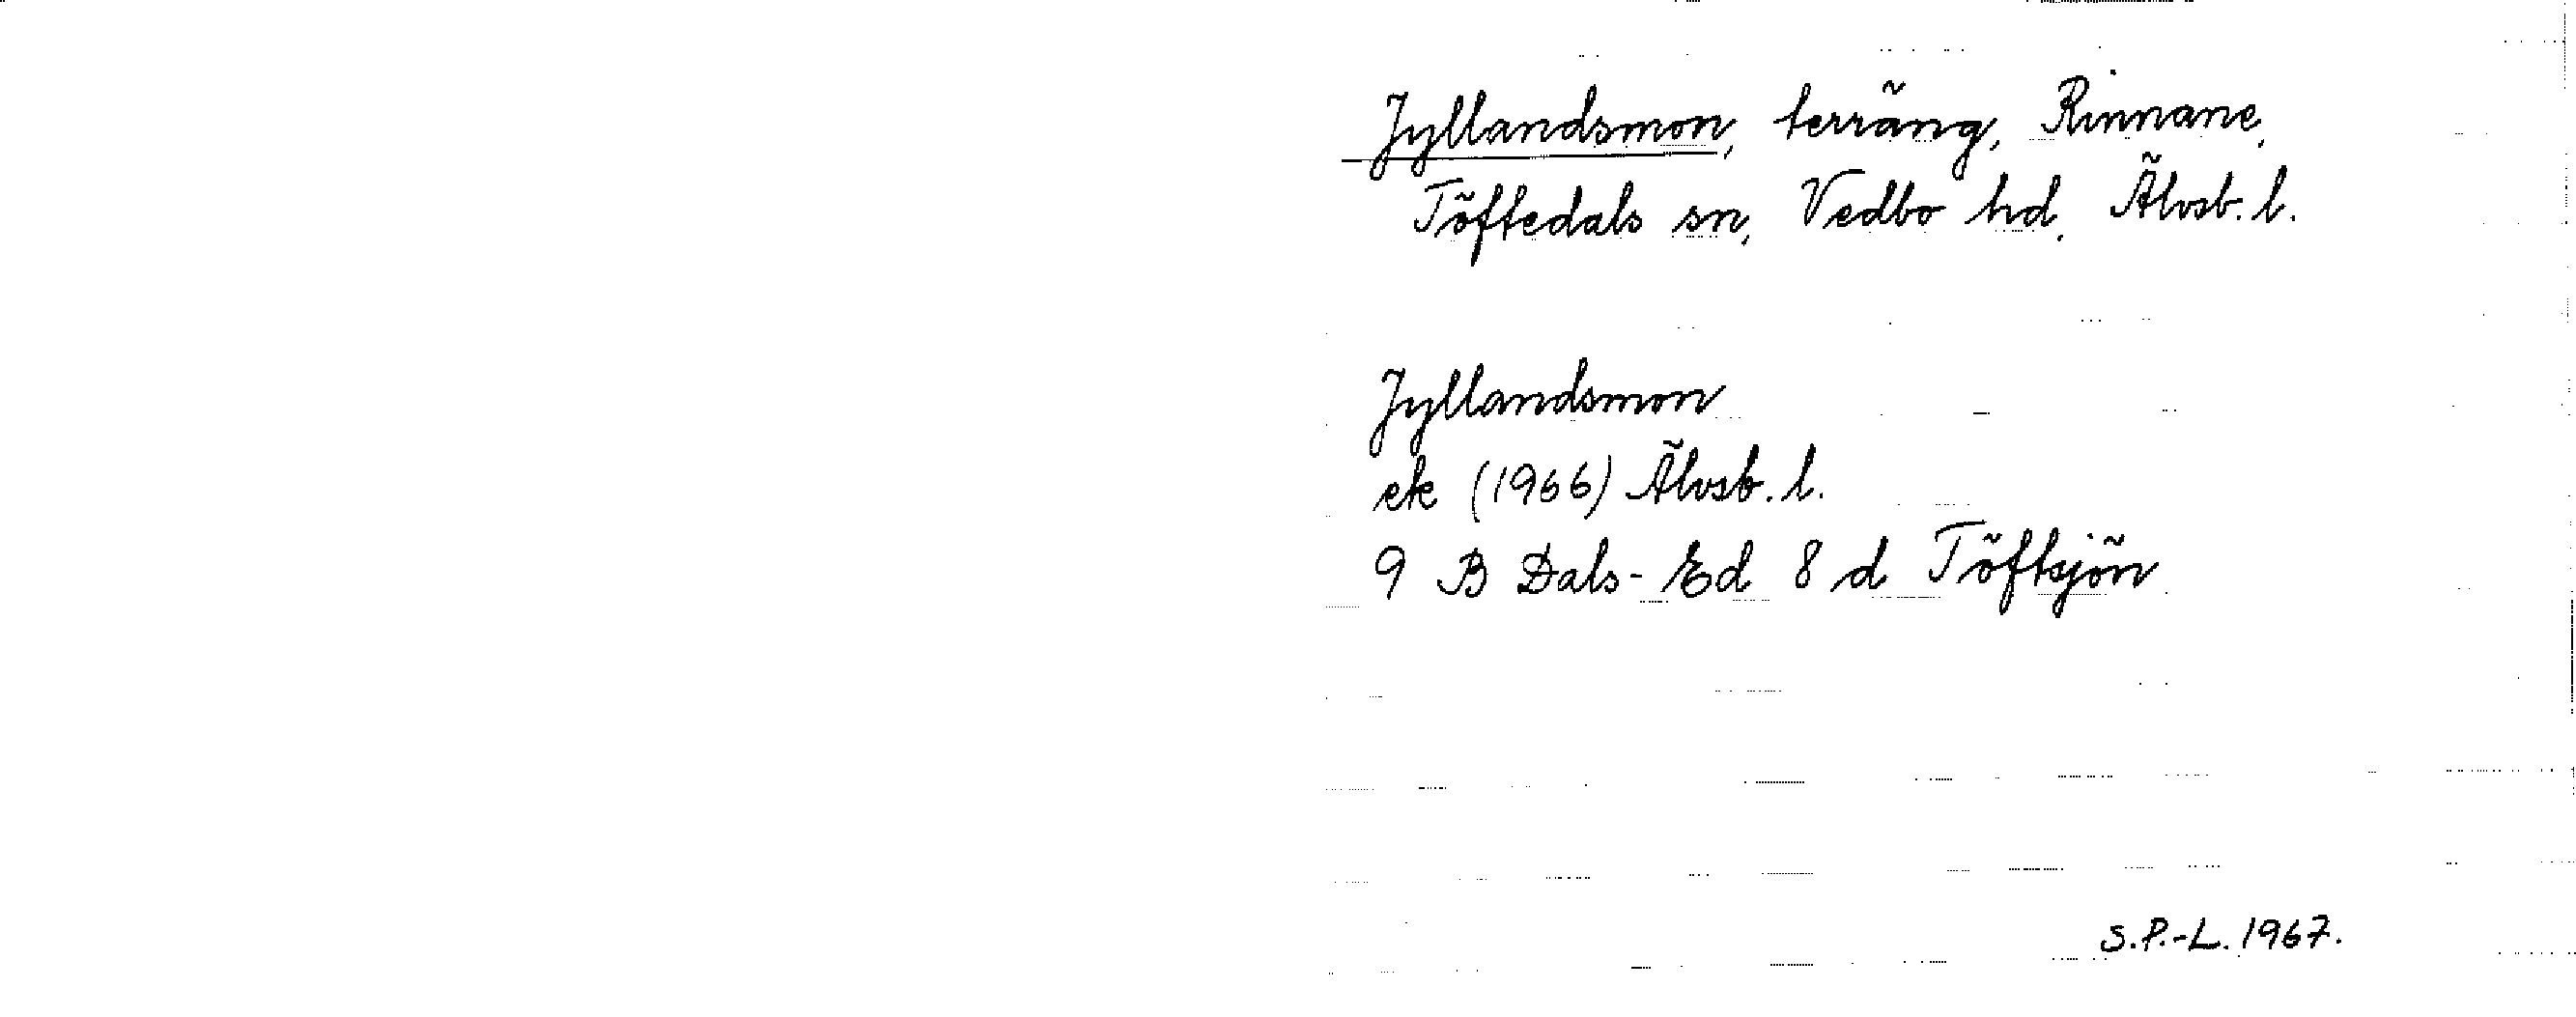 Jyllandsmon, terräng, Rinnane,
Töftedals sn, Vedbo hd, Älvsb. l.
Jyllandsmon
ek (1966) Älvsb. l.
9 B Dals-Ed 8 d Töftsjön
S.P.-L. 1967.